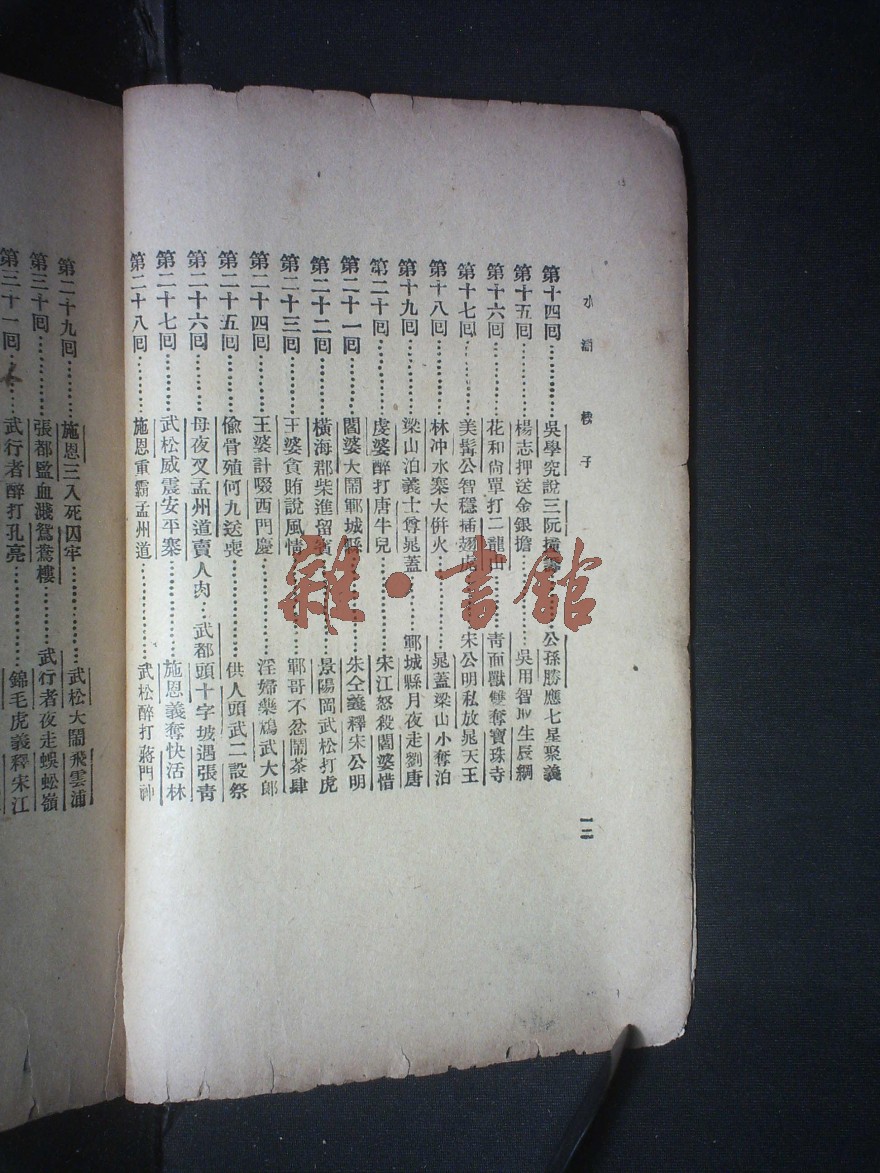 水滸 楔子
一二
第十四回…………吳學究說三阮撞籌……公孫勝應七星聚義
第十五回…………楊志押送金銀擔…………吳用智取生辰綱
第十六回…………花和尚單打二龍山…………青面獸雙奪寶珠寺
第十七回…………美髯公智穩插翅虎…………宋公明私放晁天王
第十八回…………林冲水寨大併火…………晁蓋梁山小奪泊
第十九回…………梁山泊義士尊晁蓋…………鄆城縣月夜走劉唐
第二十回…………虔婆醉打唐牛兒…………宋江怒殺閻婆惜
第二十一回…………閻婆大鬧鄆城縣…………朱仝義釋宋公明
第二十二回…………橫海郡柴進留賓…………景陽岡武松打虎
第二十三回…………王婆貪賄說風情…………鄆哥不忿鬧茶肆
第二十四回…………王婆計啜西門慶…………淫婦藥鴆武大郎
第二十五回…………偷骨殖何九送喪…………供人頭武二設祭
第二十六回…………母夜叉孟州道賣人肉…武都頭十字坡遇張青
第二十七回…………武松威震安平寨…………施恩義奪快活林
第二十八回…………施恩重霸孟州道…………武松醉打蔣門神
第二十九回…………施恩三入死囚牢…………武松大鬧飛雲浦
第三十回…………張都監血濺鴛鴦樓…………武行者夜走蜈蚣嶺
第三十一回…………武行者醉打孔亮…………錦毛虎義釋宋江
雜·書館